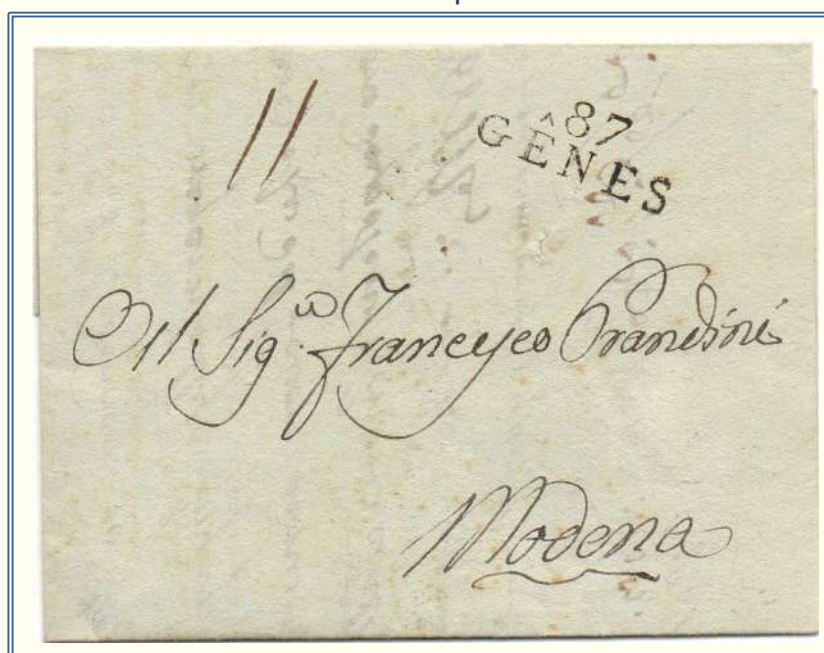 11
87
GÊNES
Al Sig.ʳ Francesco Prandini
Modena